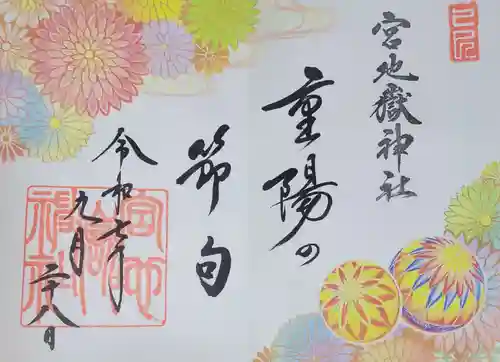 宮地嶽神社
重陽の
節句
令和七年
九月二十八日
宮地嶽神社